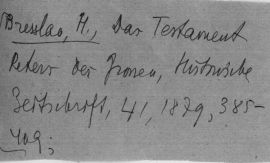 Bresslau, H., Das Testament
Peters des Grossen, Historische
Zeitschrift, 41, 1879, 385-
409;